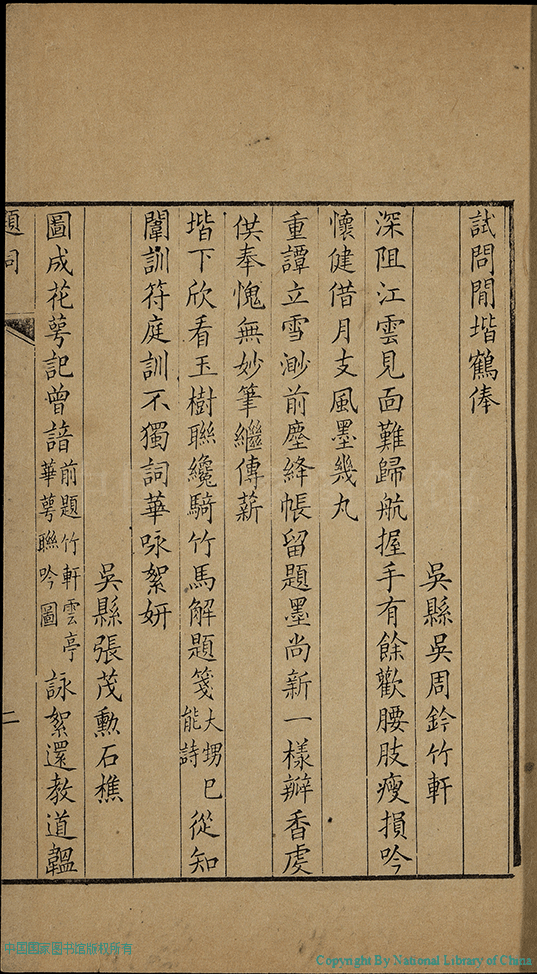 試問閒堦鶴俸
吳縣吳周鈐竹軒
深阻江雲見面難歸航握手有餘歡腰肢瘦損吟
懷健借月支風墨幾丸
重譚立雪渺前塵絳帳留題墨尚新一樣瓣香虔
供奉愧無妙筆繼傳薪
堦下欣看玉樹聯纔騎竹馬解題箋大甥已能詩從知
闈訓符庭訓不獨詞華咏絮妍
吳縣張茂勳石樵
圖成花萼記曾諳前題竹軒雲亭華萼聯吟圖詠絮還教道韞
題詞
二
中国国家图书馆
中国国家图书馆版权所有
Copyright By National Library of China